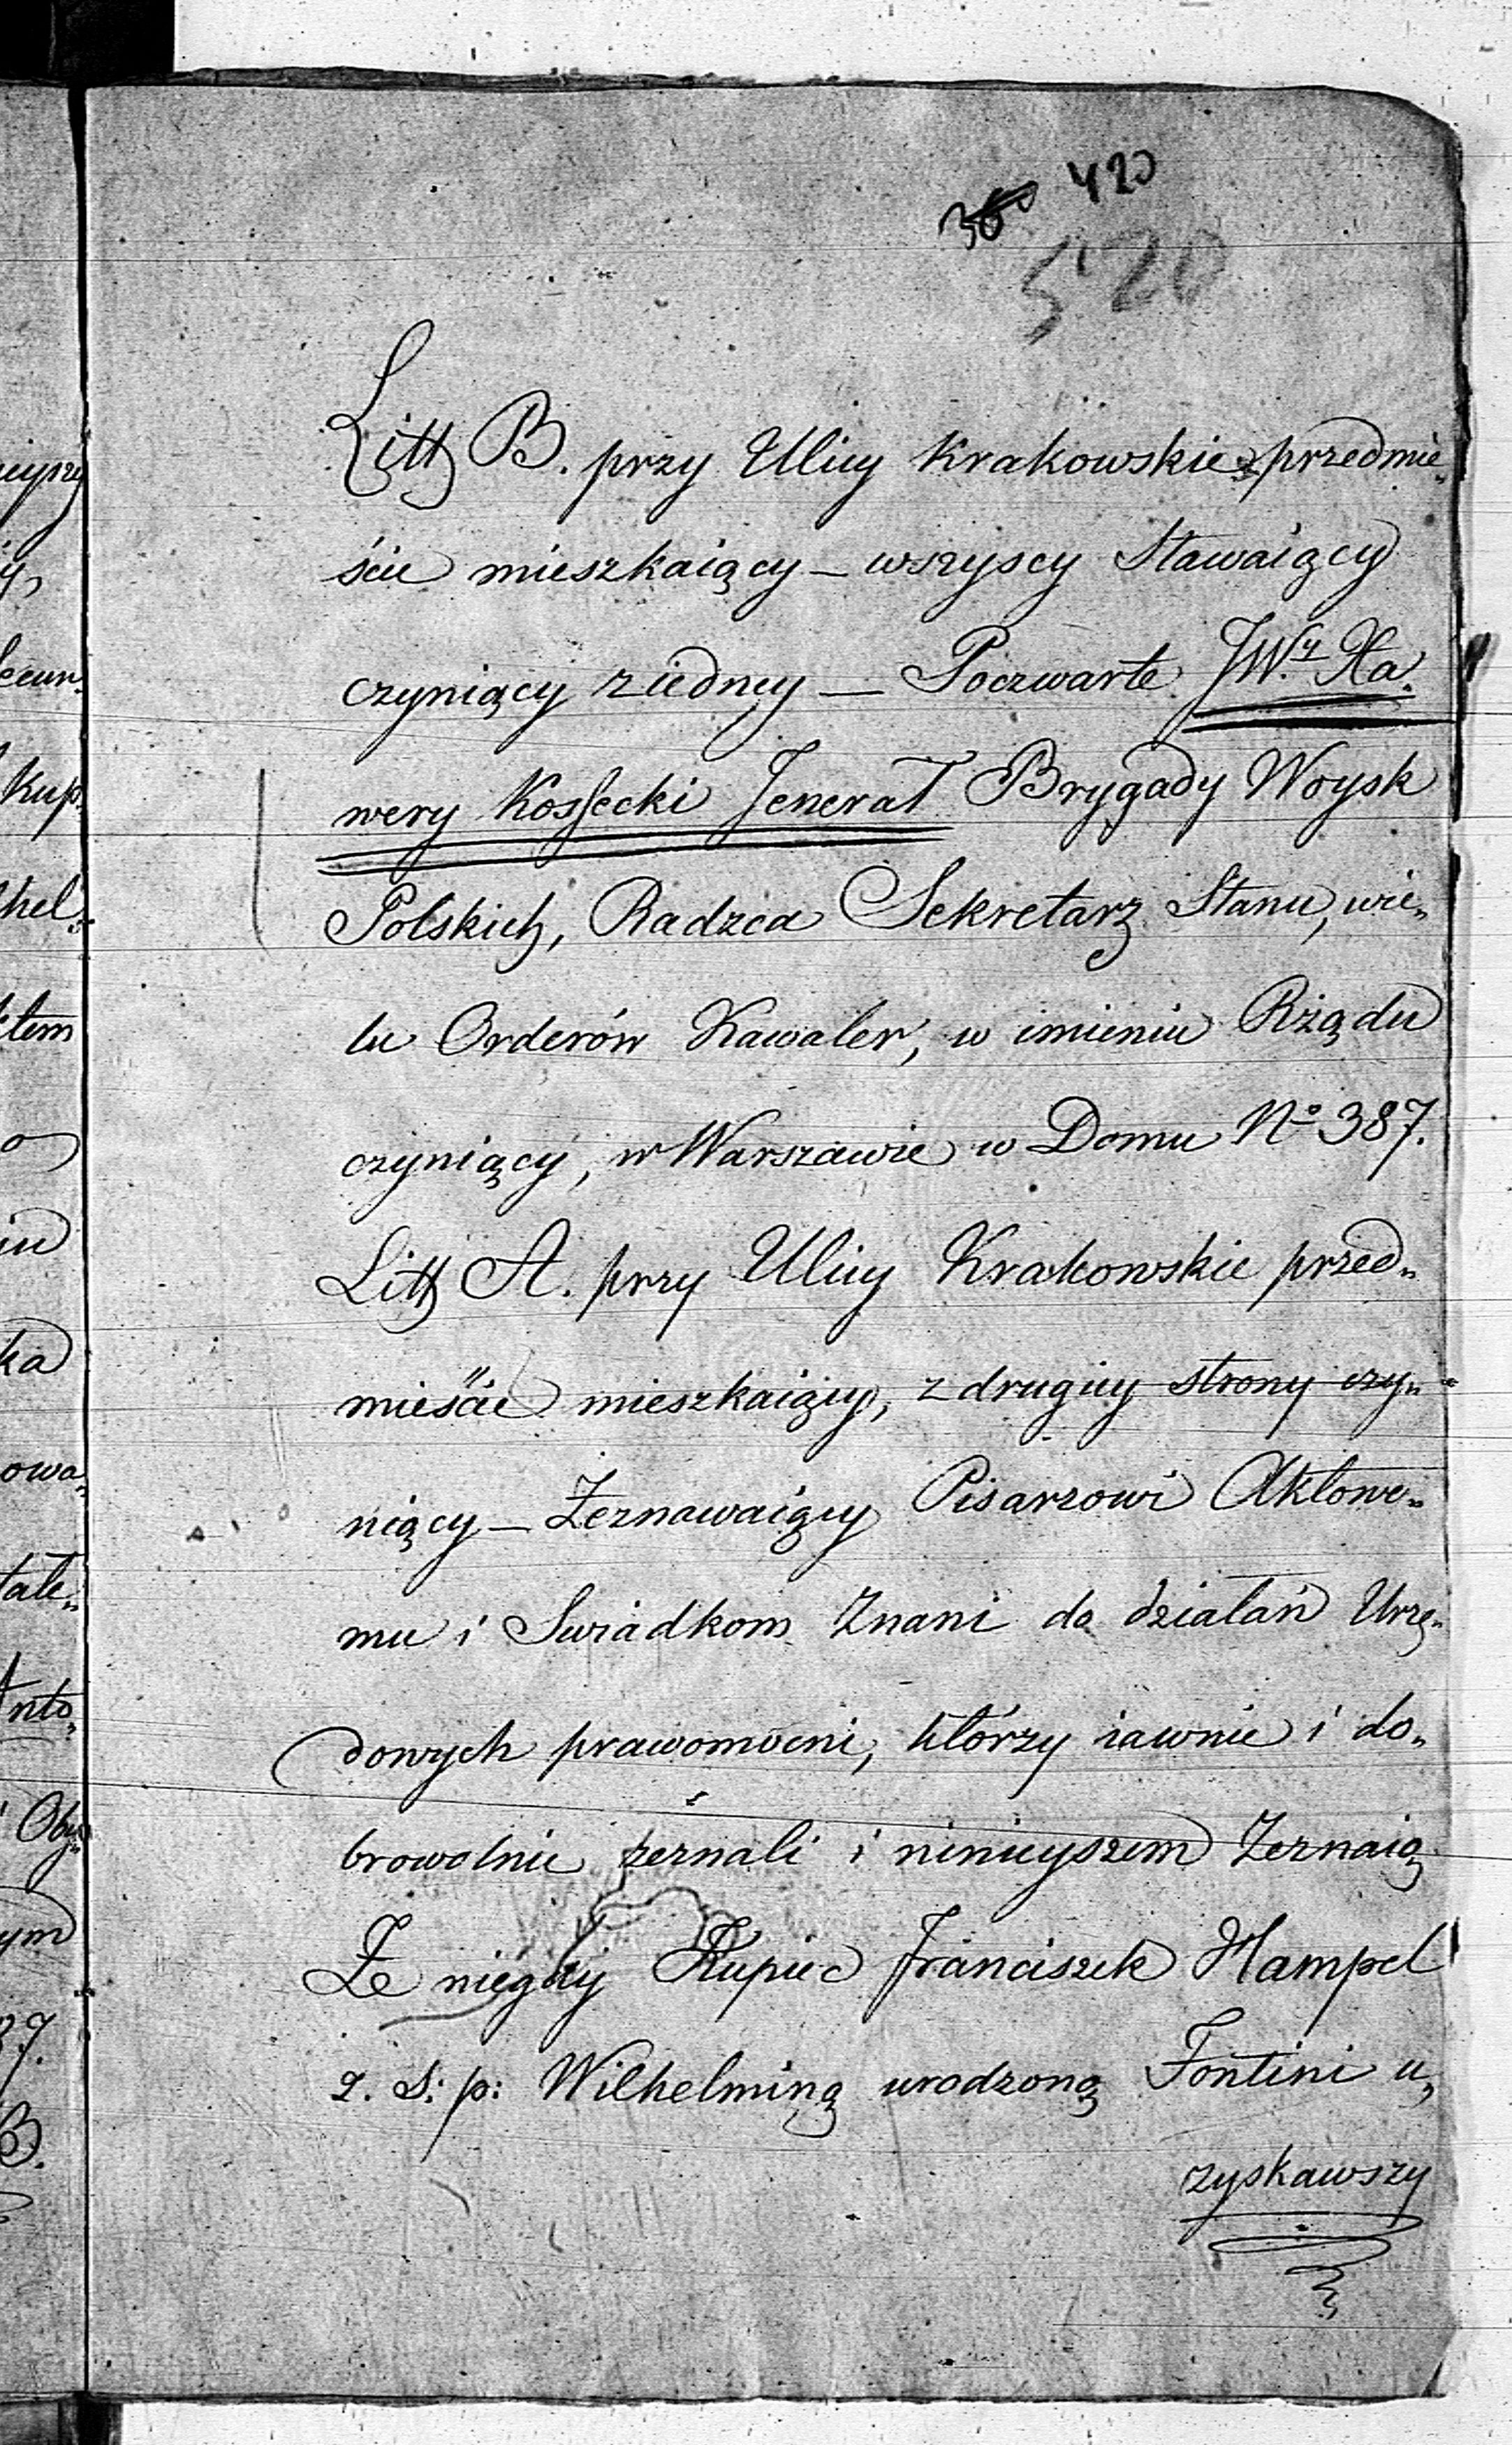 360 420
520
Litt B. przy Ulicy Krakowskie przedmie„
ście mieszkaiący – wszyscy Stawaiący
czyniący ziedney — Poczwarte JWy Xa„
wery Kossecki Jenerał Brygady Woysk
Polskich, Radzca Sekretarz Stanu, wie„
lu Orderów Kawaler, w imieniu Rządu
czyniący, w Warszawie w Domu No 387.
Litt A. przy Ulicy Krakowskie przed„
mieście mieszkaiący, z drugiey strony czy„
niący — Zeznawaiący Pisarzowi Aktowe„
mu i Swiadkom Znani do działań Urzę„
dowych prawomocni, którzy iawnie i do„
browolnie zeznali i ninieyszem Zeznaią
Że niegdy Kupiec Franciszek Hampel
z. S: p: Wilhelminą urodzoną Fontini u„
zyskawszy